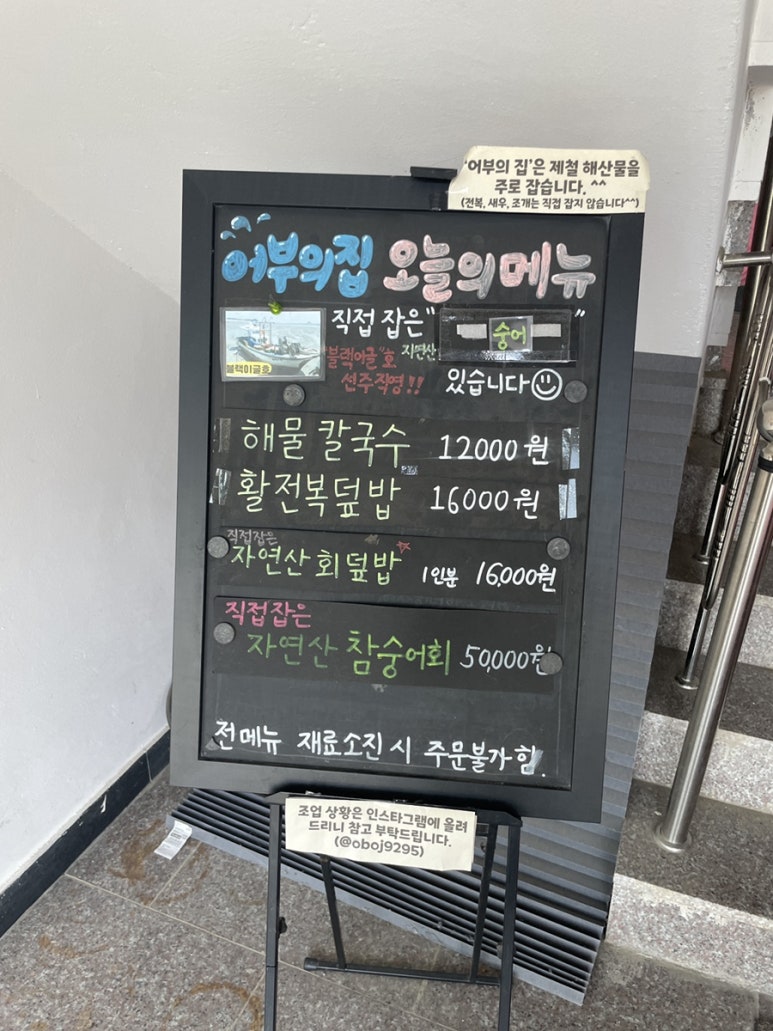 '어부의 집'은 제철 해산물을
주로 잡습니다. ^^
(전복, 새우, 조개는 직접 잡지 않습니다^^)
어부의집 오늘의메뉴
직접 잡은 " 숭어 "
"블랙이글"호 자연산
선주직영!! 있습니다
블랙이글호
해물 칼국수 12000원
활전복덮밥 16000원
직접잡은
자연산 회덮밥 1인분 16,000원
직접잡은
자연산 참숭어회 50,000원
전메뉴 재료소진 시 주문불가함.
조업 상황은 인스타그램에 올려
드리니 참고 부탁드립니다.
(@oboj9295)